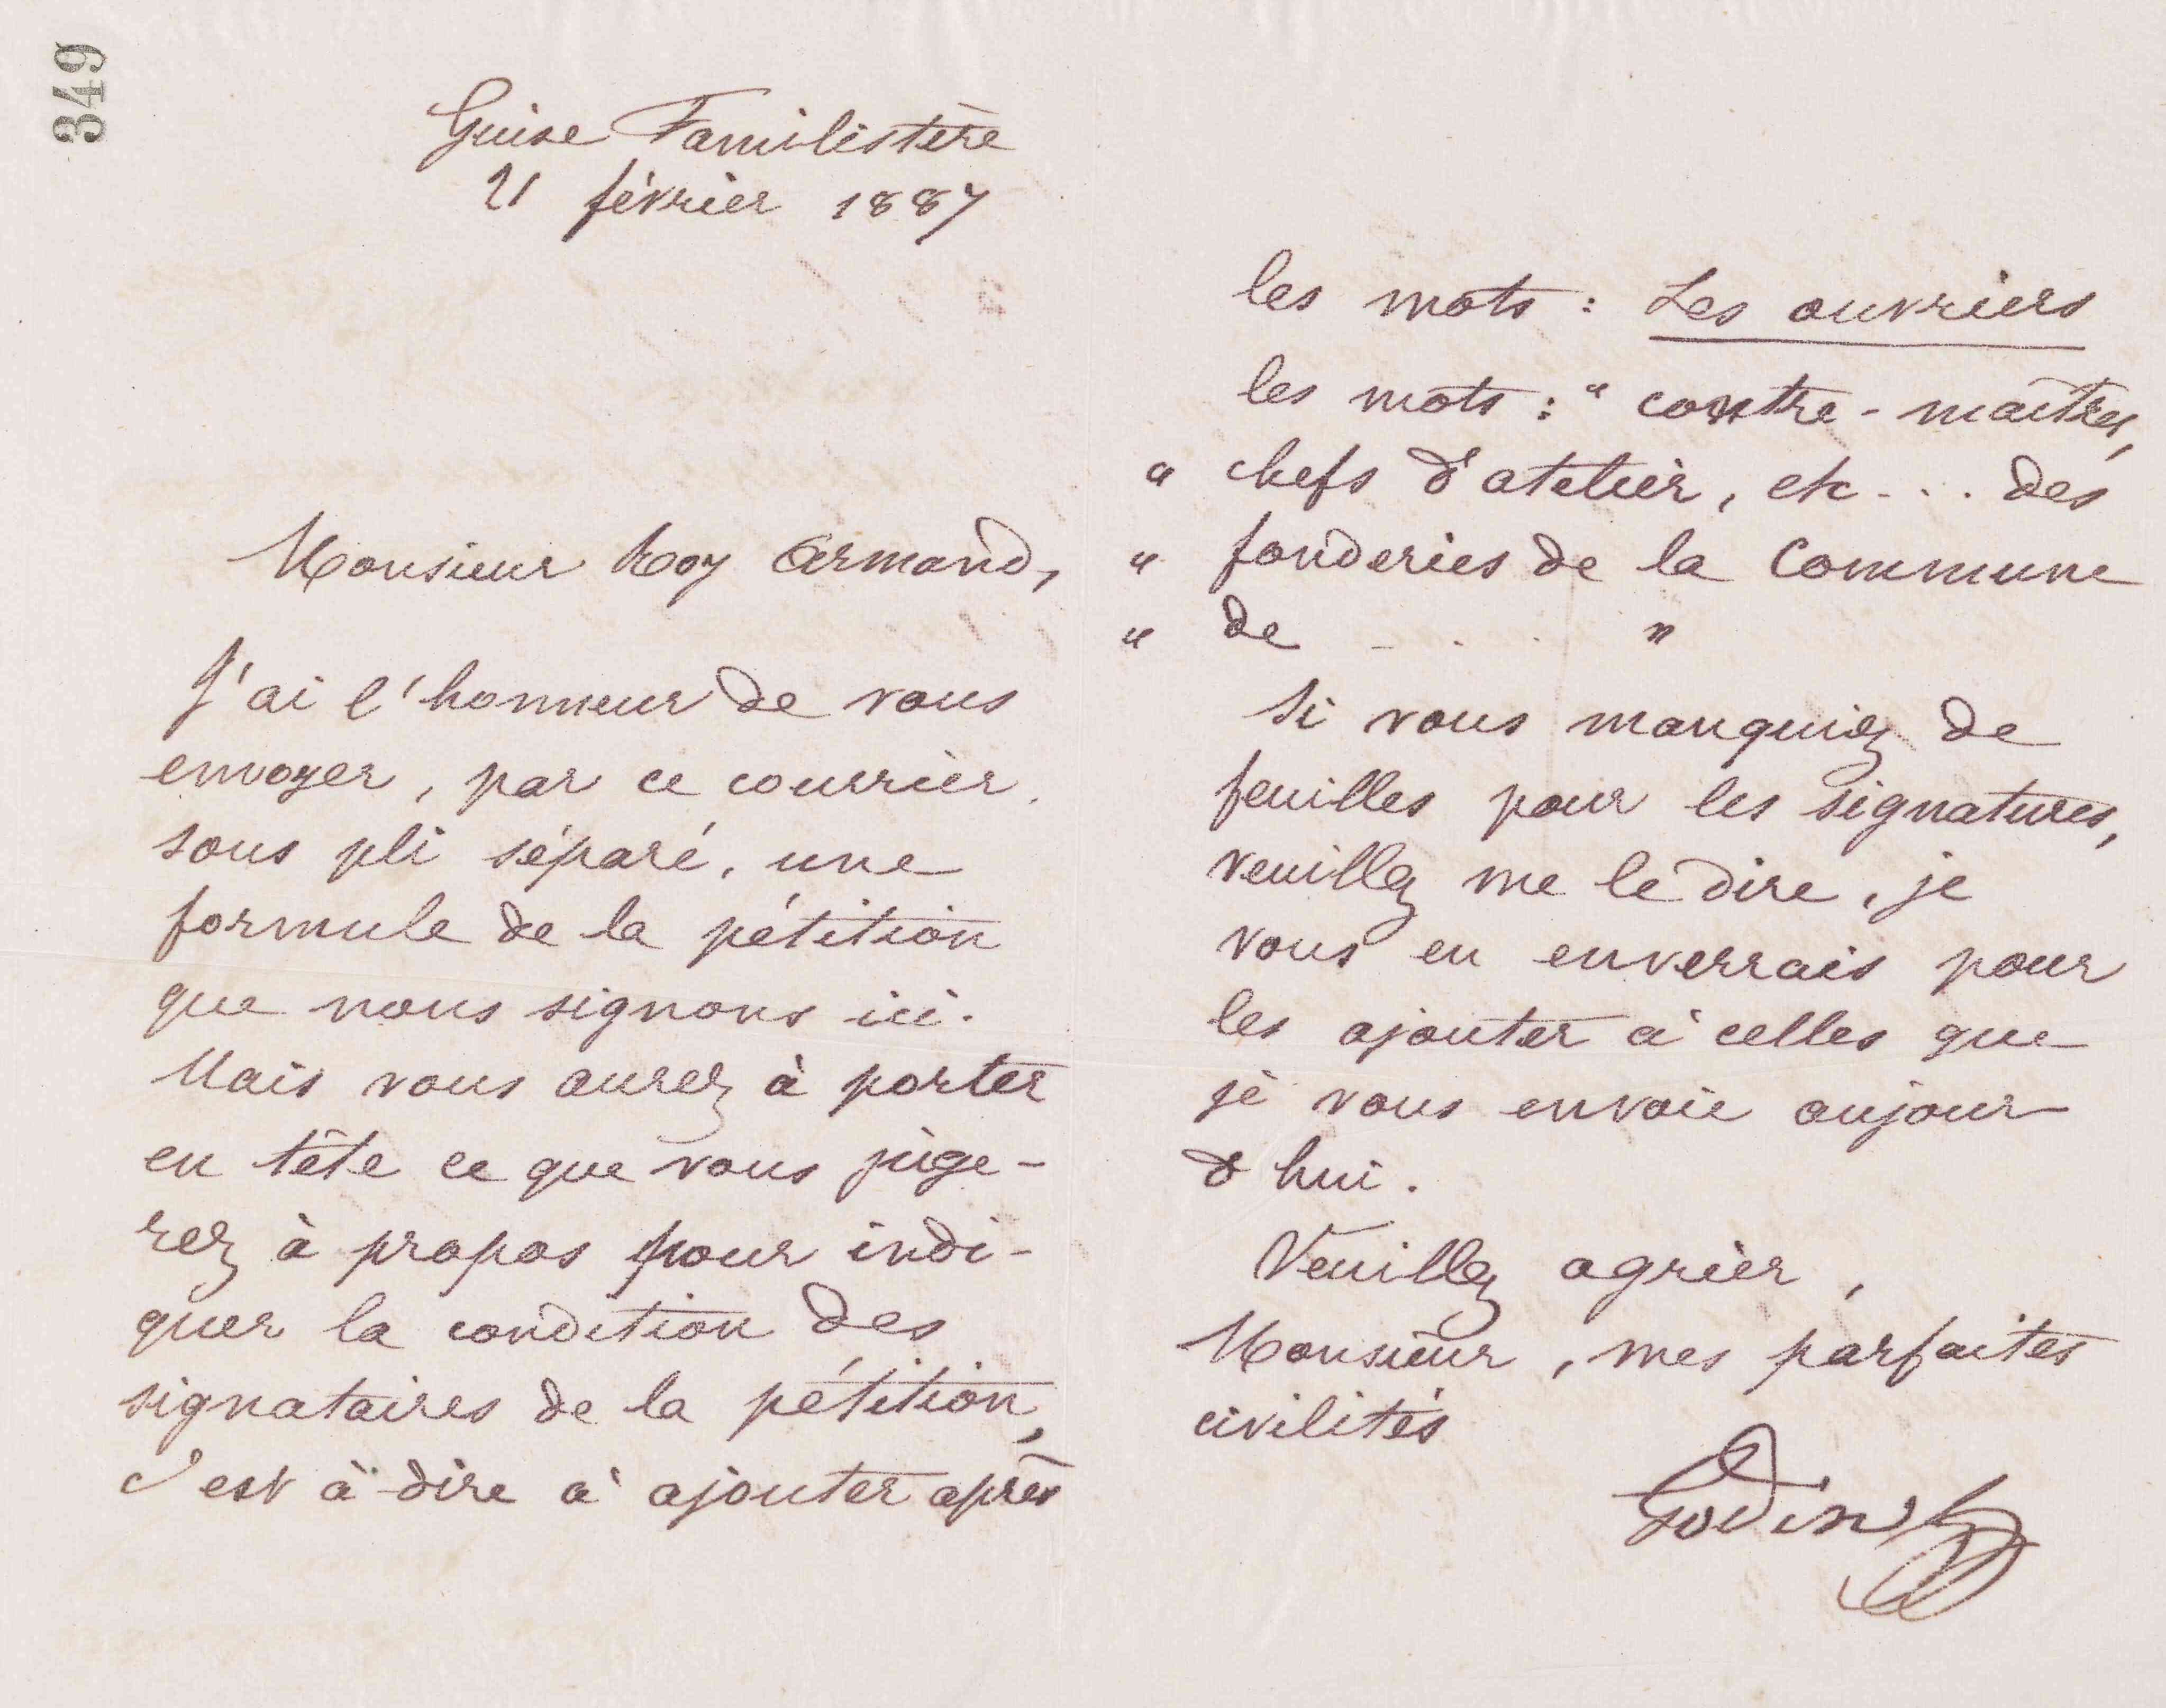 349
Guise Familistère
21 février 1887
Monsieur Roy Armand,
J'ai l'honneur de vous
envoyer, par ce courrier,
sous pli séparé, une
formule de la pétition
que nous signons ici.
Mais vous aurez à porter
en tête ce que vous juge-
rez à propos pour indi-
quer la condition des
signataires de la pétition,
c'est à-dire à ajouter après
les mots : Les ouvriers
les mots : " contre-maîtres,
" chefs d'atelier, etc... des
" fonderies de la Commune
" de . . . "
Si vous manquiez de
feuilles pour les signatures,
veuillez me le dire, je
vous en enverrais pour
les ajouter à celles que
je vous envoie aujour
d'hui.
Veuillez agréer,
Monsieur, mes parfaites
civilités
Godin